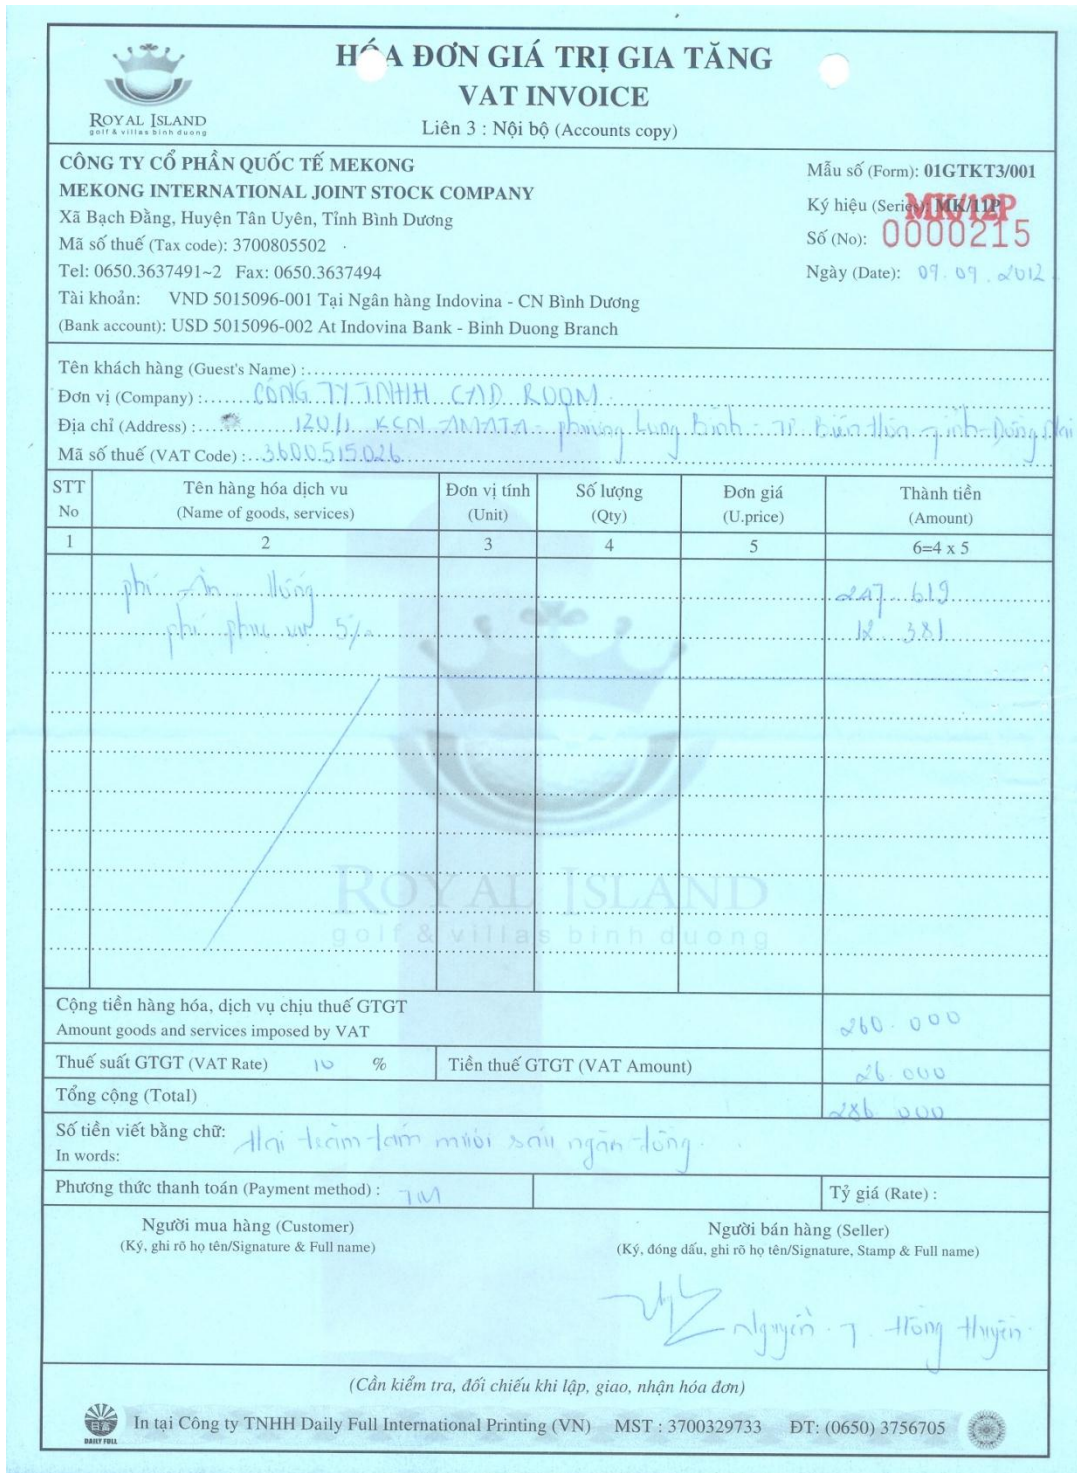 HÓA ĐƠN GIÁ TRỊ GIA TĂNG
VAT INVOICE
Liên 3 : Nội bộ (Accounts copy)
ROYAL ISLAND
golf & villas binh duong
CÔNG TY CỔ PHẦN QUỐC TẾ MEKONG
MEKONG INTERNATIONAL JOINT STOCK COMPANY
Xã Bạch Đằng, Huyện Tân Uyên, Tỉnh Bình Dương
Mã số thuế (Tax code): 3700805502
Tel: 0650.3637491~2 Fax: 0650.3637494
Tài khoản: VND 5015096-001 Tại Ngân hàng Indovina - CN Bình Dương
(Bank account): USD 5015096-002 At Indovina Bank - Binh Duong Branch
Mẫu số (Form): 01GTKT3/001
Ký hiệu (Series): MK/11P MK/12P
Số (No): 0000215
Ngày (Date): 09.09.2012
Tên khách hàng (Guest's Name) :
Đơn vị (Company) : CÔNG TY TNHH CAD ROOM
Địa chỉ (Address) : 120/1 KCN AMATA - phường Long Bình - TP. Biên Hòa - tỉnh Đồng Nai
Mã số thuế (VAT Code) : 3600515026
STT Tên hàng hóa dịch vụ Đơn vị tính Số lượng Đơn giá Thành tiền
No (Name of goods, services) (Unit) (Qty) (U.price) (Amount)
1 2 3 4 5 6=4 x 5
phí ăn uống 247 619
phí phục vụ 5% 12 381
ROYAL ISLAND
golf & villas binh duong
Cộng tiền hàng hóa, dịch vụ chịu thuế GTGT
Amount goods and services imposed by VAT 260.000
Thuế suất GTGT (VAT Rate) 10 % Tiền thuế GTGT (VAT Amount) 26.000
Tổng cộng (Total) 286 000
Số tiền viết bằng chữ: Hai trăm tám mươi sáu ngàn đồng.
In words:
Phương thức thanh toán (Payment method) : TM Tỷ giá (Rate) :
Người mua hàng (Customer) Người bán hàng (Seller)
(Ký, ghi rõ họ tên/Signature & Full name) (Ký, đóng dấu, ghi rõ họ tên/Signature, Stamp & Full name)
Nguyễn T. Hồng
(Cần kiểm tra, đối chiếu khi lập, giao, nhận hóa đơn)
DAILY FULL
In tại Công ty TNHH Daily Full International Printing (VN) MST : 3700329733 ĐT: (0650) 3756705